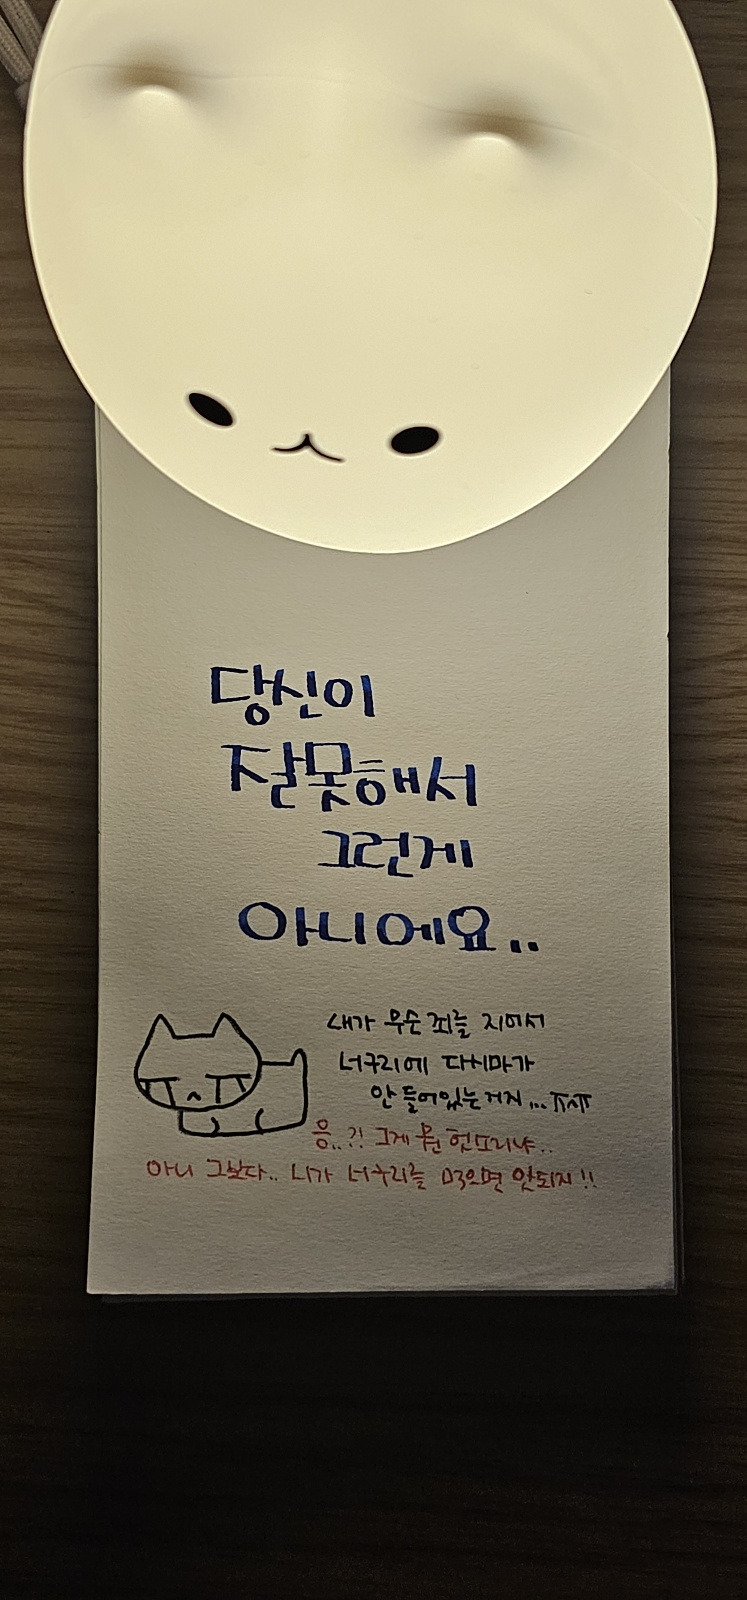 당신이
잘못해서
그런게
아니에요..
내가 무슨 죄를 지어서
너구리에 다시마가
안 들어있는거지...ㅠㅅㅠ
응..?! 그게 뭔 헛소리냐..
아니 그보다.. 니가 너구리를 먹으면 안되지!!